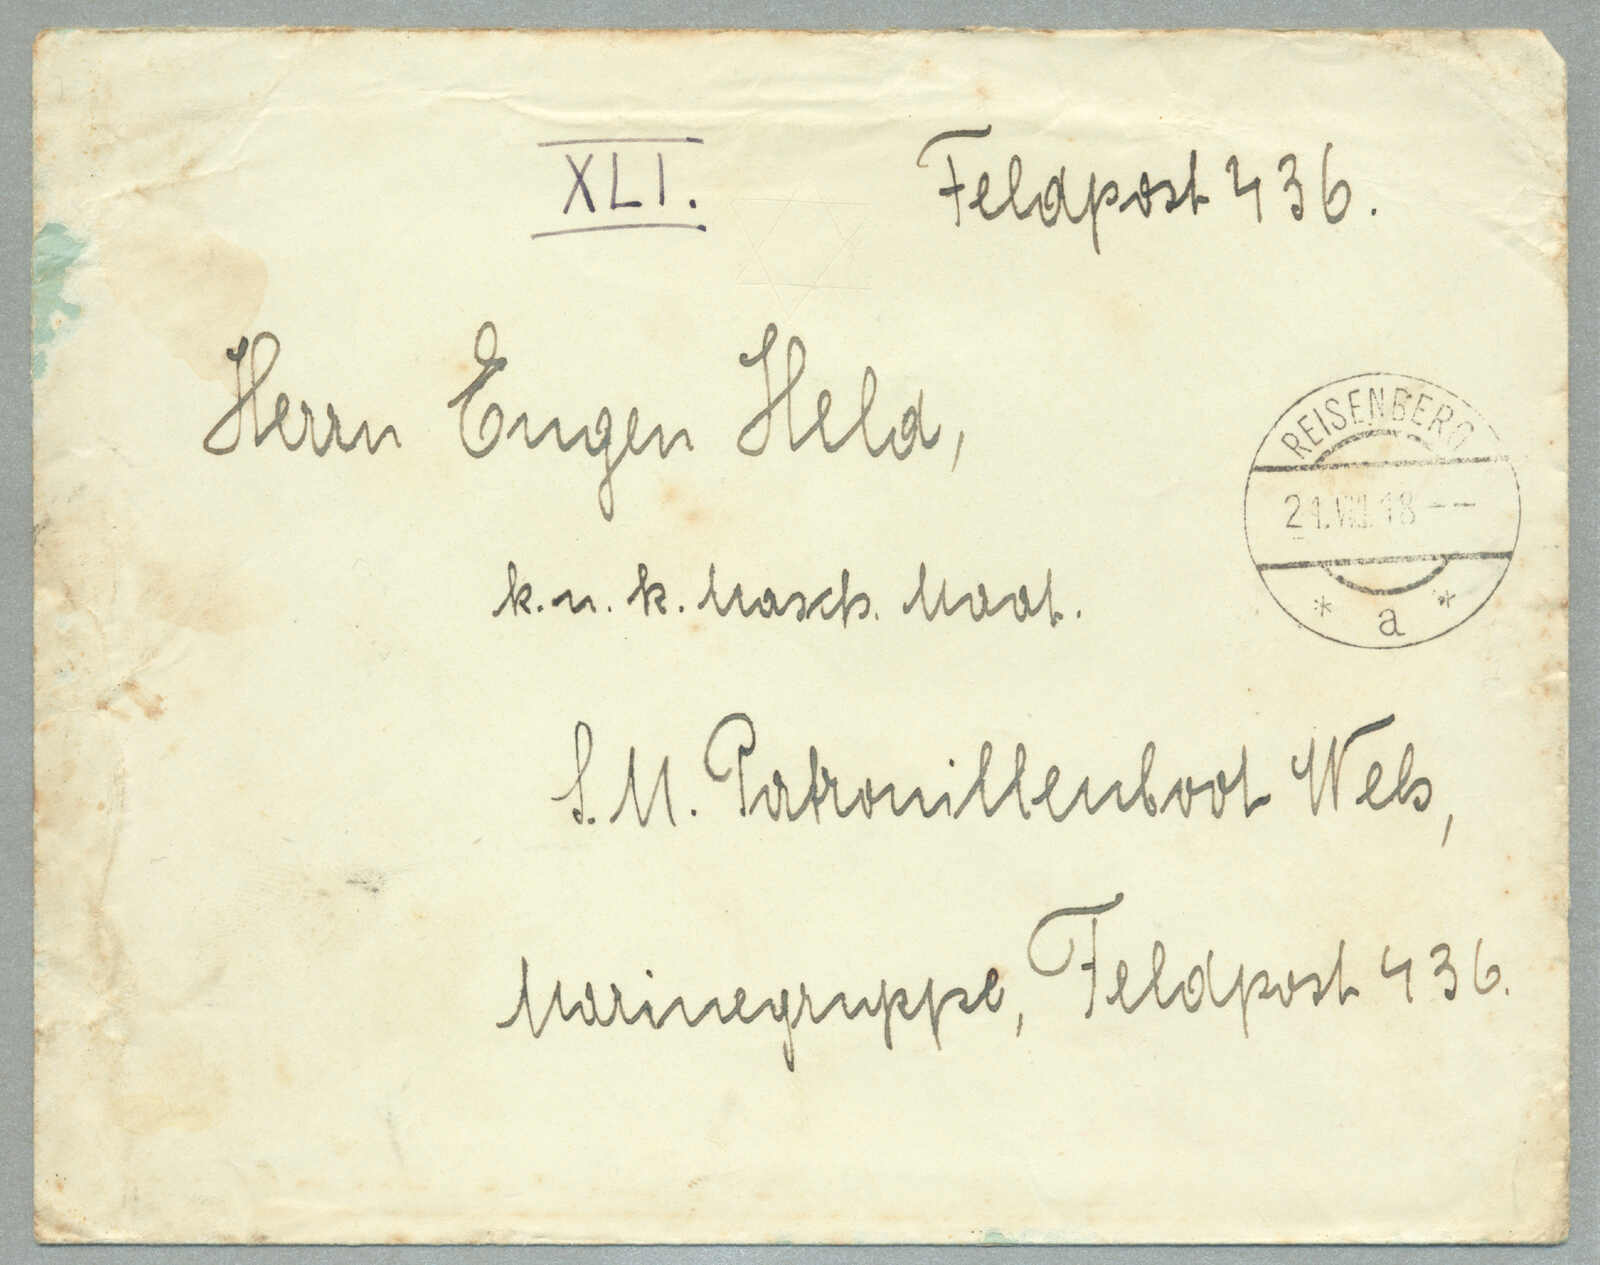 XLI.
Feldpost 436.
Herrn Eugen Held,
k. u. k. Masch. Maat.
S. M. Patrouillenboot Wels,
Marinegruppe, Feldpost 436.
REISENBERG
21.VIII.18--
* a *